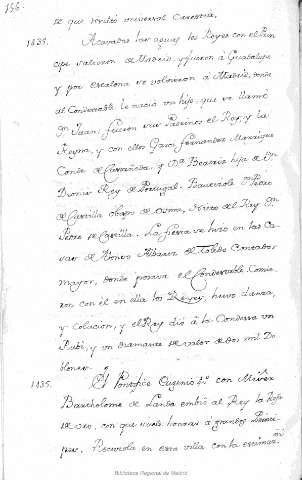 156.
se que recibio universal Carestia.
1435. Acavadas las aguas los Reyes con el Prin
cipe salieron de Madrid, y fueron á Guadalupe
y por escalona se volvieron á Madrid, donde
al Condestable le nacio un hijo, que se llamó
Dn Juan, fueron sus Padrinos el Rey, y la
Reyna, y con ellos Garci Fernandez Manrrique
Conde de Castañeda, y Da. Beatriz hija de Dn
Dionis Rey de Portugal. Bautizole Dn Pedro
de Castilla obispo de osma, Nieto del Rey Dn
Pedro de Castilla. La fiesta se hizo en las Ca
sas de Alonso Albarez de Toledo Contador
mayor, donde posava el Condestable. Comie
ron con él en ella los Reyes, huvo danza,
y colacion, y el Rey dió á la Condesa un
Rubi, y un diamante de valor de dos mil Do
blones.
1435. El Pontifice Eugenio 4o. con Micer
Bartholome de embió al Rey la Rosa
de oro, con que suele honrar á grandes Princi
pes. Recivola en esta villa con la estimaon
Biblioteca Regional de Madrid